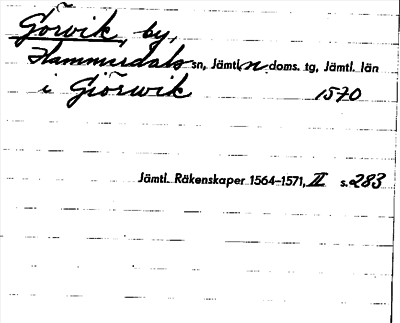 Görvik, by,
Hammerdals sn, Jämtl. n. doms. tg, Jämtl. län
i Giörwik 1570
Jämtl. Räkenskaper 1564-1571, II s. 283